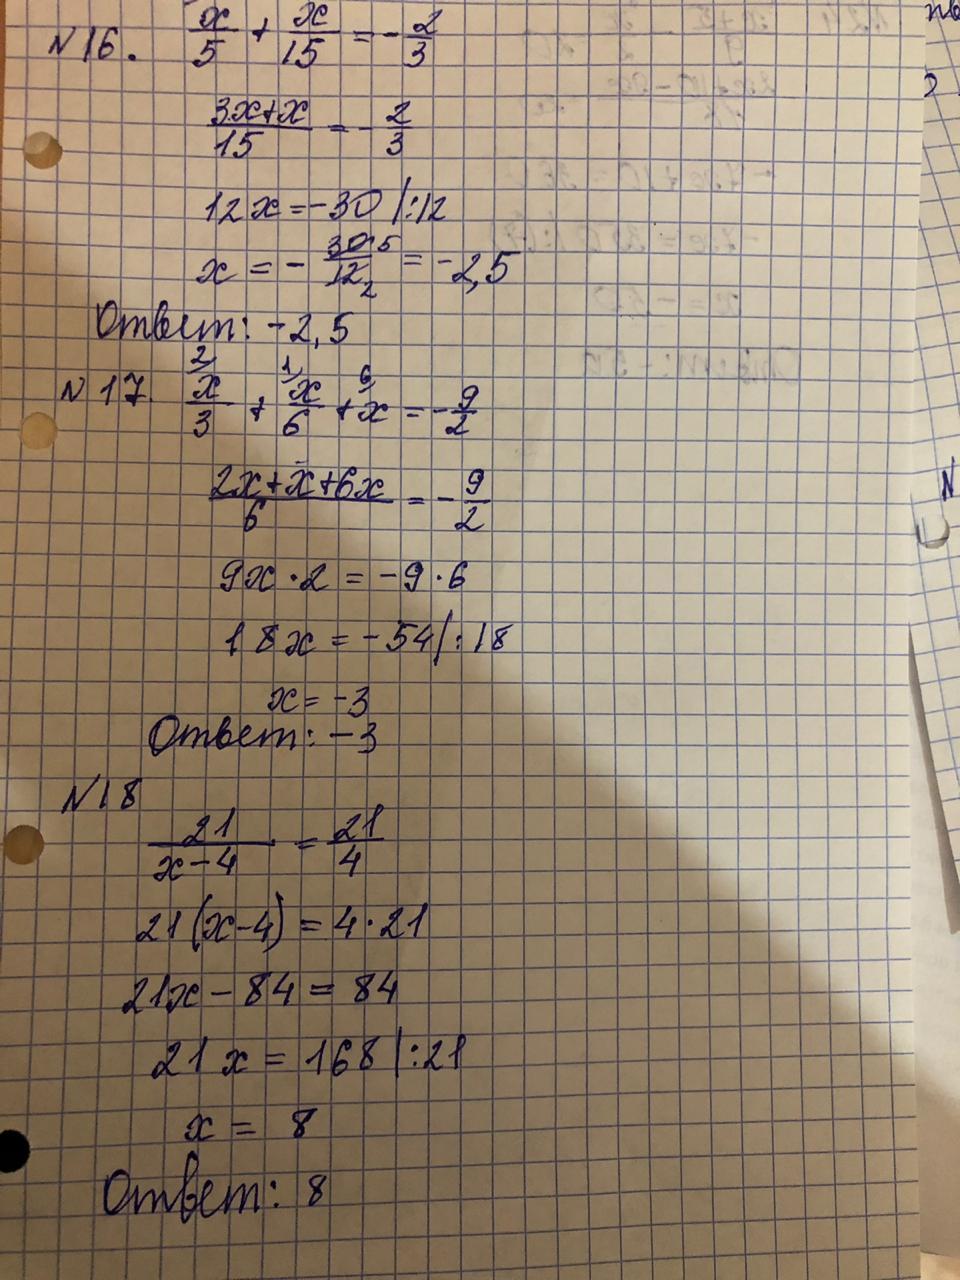 N 16. x/5 + x/15 = - 2/3
3x+x/15 = - 2/3
12x = -30 |:12
x = - 30 5/12 2 = -2,5
Ответ: -2,5
2 1 6
N 17. x/3 + x/6 + x = - 9/2
2x+x+6x/6 = - 9/2
9x · 2 = -9 · 6
18x = -54 |:18
x = -3
Ответ: -3
N 18
21/x-4 = 21/4
21(x-4) = 4 · 21
21x - 84 = 84
21x = 168 |:21
x = 8
Ответ: 8
N